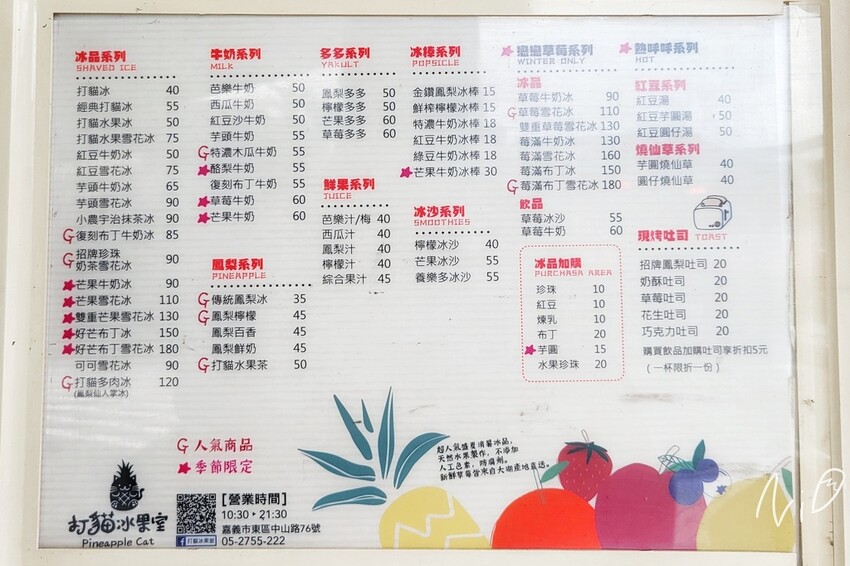 冰品系列
SHAVED ICE
打貓冰 40
經典打貓冰 55
打貓水果冰 50
打貓水果雪花冰 75
紅豆牛奶冰 50
紅豆雪花冰 75
芋頭牛奶冰 65
芋頭雪花冰 90
小農宇治抹茶冰 90
G復刻布丁牛奶冰 85
G招牌珍珠
奶茶雪花冰 90
芒果牛奶冰 90
芒果雪花冰 110
雙重芒果雪花冰 130
好芒布丁冰 150
好芒布丁雪花冰 180
可可雪花冰 90
G打貓多肉冰 120
(鳳梨仙人掌冰)
牛奶系列
MILK
芭樂牛奶 50
西瓜牛奶 50
紅豆沙牛奶 50
芋頭牛奶 55
G特濃木瓜牛奶 55
酪梨牛奶 55
復刻布丁牛奶 55
草莓牛奶 60
芒果牛奶 60
鳳梨系列
PINEAPPLE
G傳統鳳梨冰 35
G鳳梨檸檬 45
鳳梨百香 45
鳳梨鮮奶 45
G打貓水果茶 50
多多系列
YAKULT
鳳梨多多 50
檸檬多多 50
芒果多多 60
草莓多多 60
鮮果系列
JUICE
芭樂汁/梅 40
西瓜汁 40
鳳梨汁 40
檸檬汁 40
綜合果汁 45
冰棒系列
POPSICLE
金鑽鳳梨冰棒 15
鮮榨檸檬冰棒 15
特濃牛奶冰棒 18
紅豆牛奶冰棒 18
綠豆牛奶冰棒 18
芒果牛奶冰棒 30
冰沙系列
SMOOTHIES
檸檬冰沙 40
芒果冰沙 55
養樂多冰沙 55
戀戀草莓系列
WINTER ONLY
冰品
草莓牛奶冰 90
G草莓雪花冰 110
雙重草莓雪花冰 130
莓滿牛奶冰 130
莓滿雪花冰 160
莓滿布丁冰 150
G莓滿布丁雪花冰 180
飲品
草莓冰沙 55
草莓牛奶 60
冰品加購
PURCHASA AREA
珍珠 10
紅豆 10
煉乳 10
布丁 20
芋圓 15
水果珍珠 20
熱呼呼系列
HOT
紅豆系列
紅豆湯 40
紅豆芋圓湯 50
紅豆圓仔湯 50
燒仙草系列
芋圓燒仙草 40
圓仔燒仙草 40
現烤吐司 TOAST
招牌鳳梨吐司 20
奶酥吐司 20
草莓吐司 20
花生吐司 20
巧克力吐司 20
購買飲品加購吐司享折扣5元
(一杯限折一份)
G人氣商品
季節限定
打貓冰果室
Pineapple Cat
打貓冰果室
[營業時間]
10:30-21:30
嘉義市東區中山路76號
05-2755-222
超人氣盛夏消暑冰品，
天然水果製作，不添加
人工色素，防腐劑。
新鮮草莓皆來自大湖產地直送。